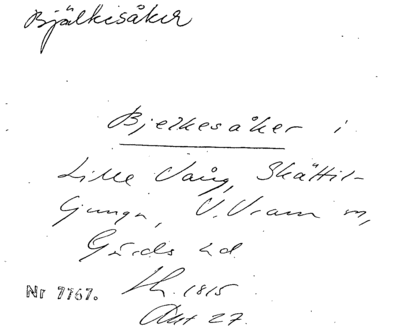 Bjälkisåker
Bjelkesåker i
Lille Vång, Skättil-
junga, V. Vram m,
Gärds hd
Nr 7767. Lh. 1815
Akt 27.